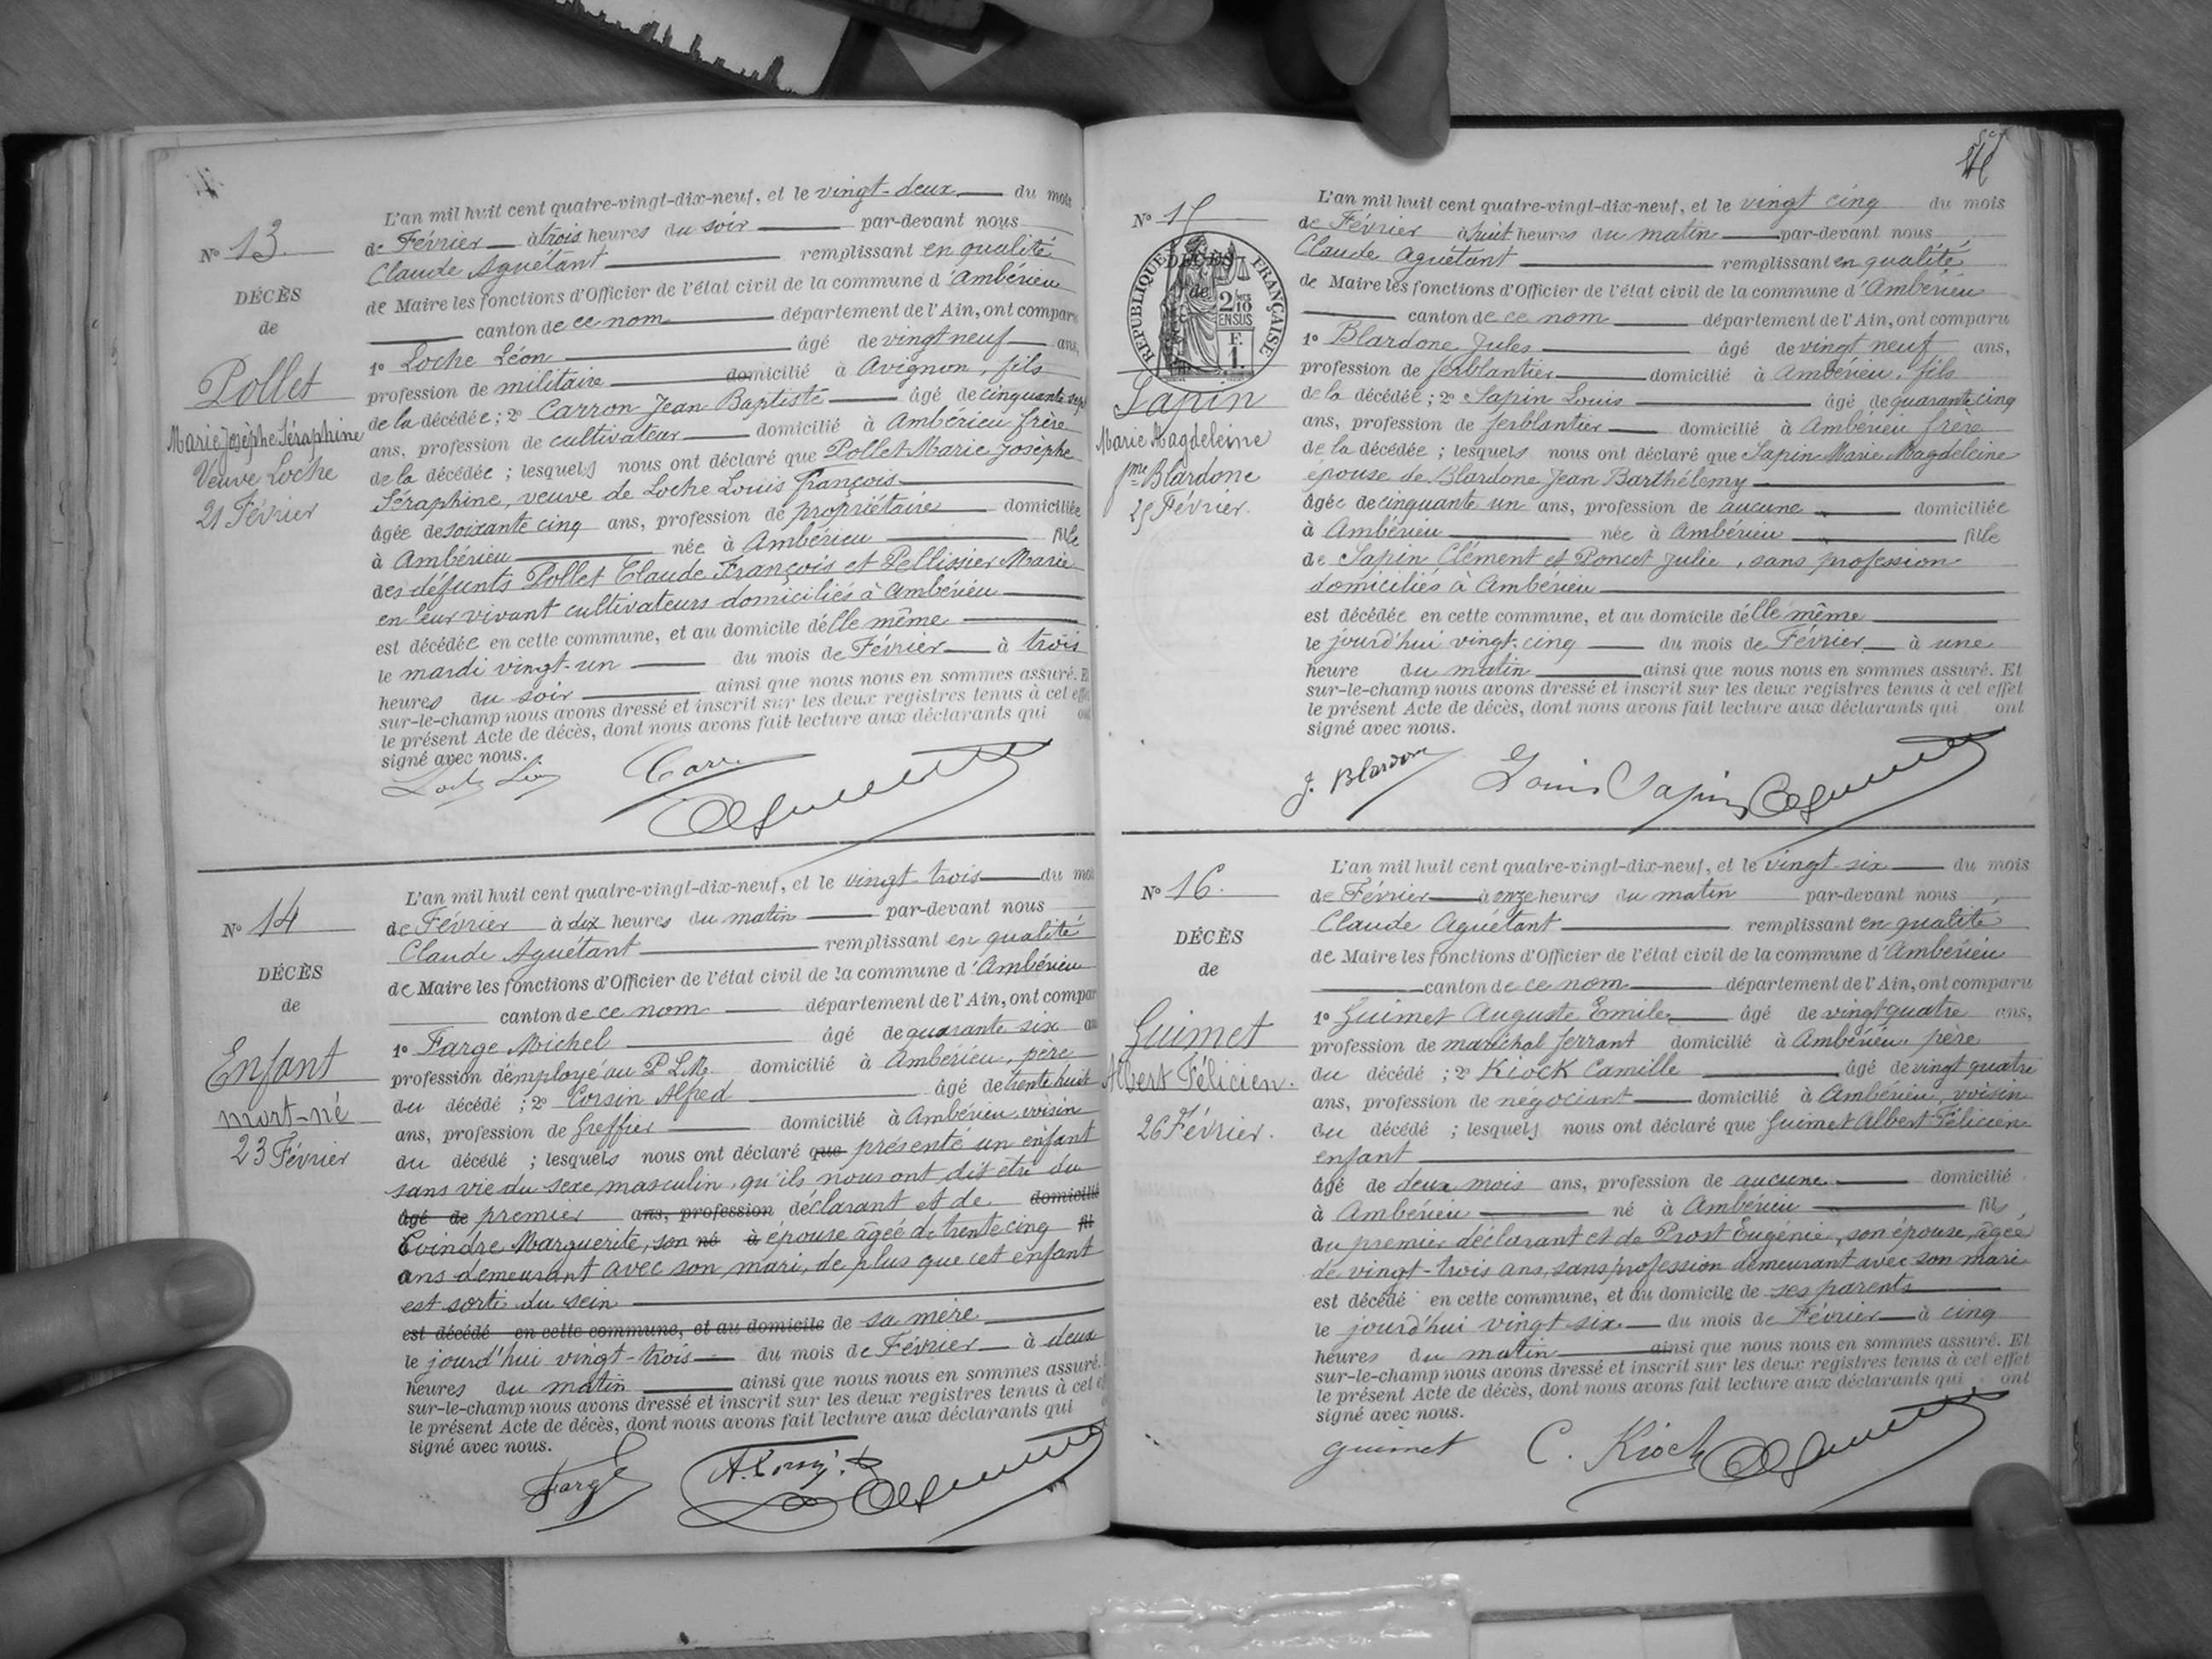 L'an mil huit cent quatre-vingt-dix-neuf, et le vingt-deux du mois
No 13.
de Février à trois heures du soir par-devant nous
Claude Aguétant remplissant en qualité
DÉCÈS
de Maire les fonctions d'Officier de l'état civil de la commune d'Ambérieu
de
canton de ce nom département de l'Ain, ont compar
1o Loche Léon âgé de vingt neuf ans,
Pollet
profession de militaire domicilié à Avignon, fils
de la décédée; 2o Carron Jean Baptiste âgé de cinquante sept
Marie Josèphe Séraphine
ans, profession de cultivateur domicilié à Ambérieu frère
Veuve Loche
de la décédée ; lesquels nous ont déclaré que Pollet Marie Josèphe
21 Février
Séraphine, veuve de Loche Louis François
âgée de soixante cinq ans, profession de propriétaire domiciliée
à Ambérieu née à Ambérieu fille
des défunts Pollet Claude François et Pellissier Marie
en leur vivant cultivateurs domiciliés à Ambérieu
est décédée en cette commune, et au domicile d'elle même
le mardi vingt-un du mois de Février à trois
heures du soir ainsi que nous nous en sommes assuré. Et
sur-le-champ nous avons dressé et inscrit sur les deux registres tenus à cet effet
le présent Acte de décès, dont nous avons fait lecture aux déclarants qui ont
signé avec nous.
L'an mil huit cent quatre-vingt-dix-neuf, et le vingt-trois du moi
No 14
de Février à dix heures du matin par-devant nous
Claude Aguétant remplissant en qualité
DÉCÈS
de Maire les fonctions d'Officier de l'état civil de la commune d'Ambérieu
de
canton de ce nom département de l'Ain, ont compar
1o Farge Michel âgé de quarante six an
Enfant
profession d'employé au P.L.M. domicilié à Ambérieu, père
mort-né
du décédé ; 2o Corsin Alfred âgé de trente huit
23 Février
ans, profession de Greffier domicilié à Ambérieu voisin
du décédé ; lesquels nous ont déclaré que présenté un enfant
sans vie du sexe masculin, qu'ils nous ont dit être du
âgé de premier ans, profession déclarant et de domicilié
Coindre Marguerite, son né à épouse âgée de trente cinq fil
ans demeurant avec son mari, de plus que cet enfant
est sorti du sein
est décédé en cette commune, et au domicile de sa mère
le jourd'hui vingt-trois du mois de Février à deux
heures du matin ainsi que nous nous en sommes assuré.
sur-le-champ nous avons dressé et inscrit sur les deux registres tenus à cet ef
le présent Acte de décès, dont nous avons fait lecture aux déclarants qui
signé avec nous.
Farge
L'an mil huit cent quatre-vingt-dix-neuf, et le vingt cinq du mois
No 15
de Février à huit heures du matin par-devant nous
Claude Aguétant remplissant en qualité
RÉPUBLIQUE FRANÇAISE
DÉCÈS
de
2/10 EN SUS
F. 1.
de Maire les fonctions d'Officier de l'état civil de la commune d'Ambérieu
canton de ce nom département de l'Ain, ont comparu
1o Blardone Jules âgé de vingt neuf ans,
profession de ferblantier domicilié à Ambérieu, fils
Sapin
de la décédée ; 2o Sapin Louis âgé de quarante cinq
Marie Magdeleine
ans, profession de ferblantier domicilié à Ambérieu frère
fme Blardone
de la décédée ; lesquels nous ont déclaré que Sapin Marie Magdeleine
25 Février.
épouse de Blardone Jean Barthélemy
âgée de cinquante un ans, profession de aucune domiciliée
à Ambérieu née à Ambérieu fille
de Sapin Clément et Poncet Julie, sans profession
domiciliés à Ambérieu
est décédée en cette commune, et au domicile d'elle même
le jourd'hui vingt-cinq du mois de Février à une
heure du matin ainsi que nous nous en sommes assuré. Et
sur-le-champ nous avons dressé et inscrit sur les deux registres tenus à cet effet
le présent Acte de décès, dont nous avons fait lecture aux déclarants qui ont
signé avec nous.
J. Blardone Louis Sapin
L'an mil huit cent quatre-vingt-dix-neuf, et le vingt-six du mois
No 16.
de Février à onze heures du matin par-devant nous
Claude Aguétant remplissant en qualité
DÉCÈS
de Maire les fonctions d'Officier de l'état civil de la commune d'Ambérieu
de
canton de ce nom département de l'Ain, ont comparu
1o Guimet Auguste Emile âgé de vingt quatre ans,
Guimet
profession de maréchal ferrant domicilié à Ambérieu, père
Albert Félicien.
du décédé ; 2o Kiock Camille âgé de vingt quatre
ans, profession de négociant domicilié à Ambérieu, voisin
26 Février.
du décédé ; lesquels nous ont déclaré que Guimet Albert Félicien
enfant
âgé de deux mois ans, profession de aucune domicilié
à Ambérieu né à Ambérieu fils
du premier déclarant et de Prost Eugénie, son épouse, âgée
de vingt-trois ans, sans profession demeurant avec son mari
est décédé en cette commune, et au domicile de ses parents
le jourd'hui vingt six du mois de Février à cinq
heures du matin ainsi que nous nous en sommes assuré. Et
sur-le-champ nous avons dressé et inscrit sur les deux registres tenus à cet effet
le présent Acte de décès, dont nous avons fait lecture aux déclarants qui ont
signé avec nous.
Guimet C. Kiock